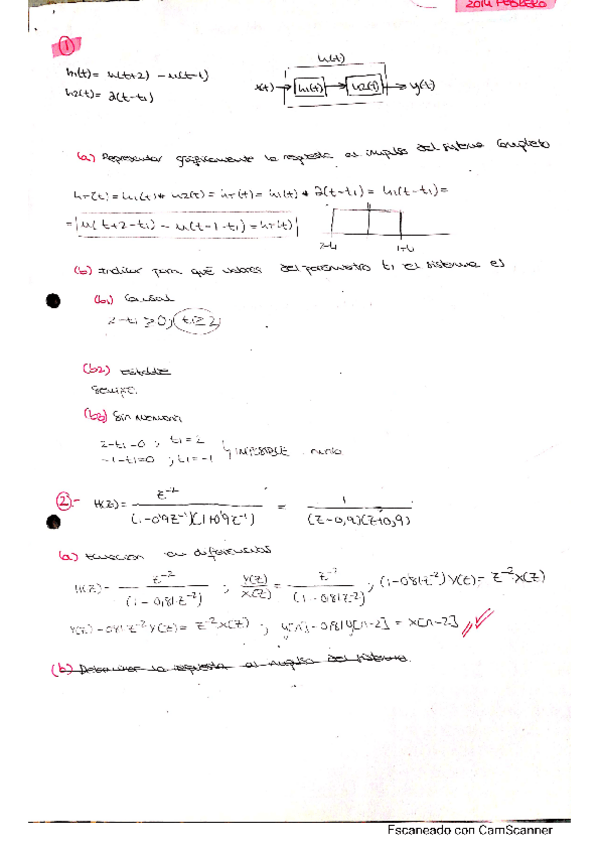 2014 FEBRERO
①
h1(t)= u(t+2) - u(t-1)
h2(t)= ∂(t-t1)
h(t)
x(t) → h1(t) → h2(t) → y(t)
(a) Representar gráficamente la respuesta al impulso del sistema completo
hT(t) = h1(t) * h2(t) = hT(t) = h1(t) * ∂(t-t1) = h1(t-t1) =
= |u(t+2-t1) - u(t-1-t1) = hT(t)|
1+t1
(b) Indicar para qué valores del parámetro t1 el sistema es
(b1) Causal
t1≥2
(b2) estable
siempre.
(b3) Sin memoria
2-t1=0 ; t1=2
-1-t1=0 ; t1=-1 } IMPOSIBLE nunca
②.- H(z)= z^-2 / (1-0'9z^-1)(1+0'9z^-1) = 1 / (z-0,9)(z+0,9)
(a) Ecuación en diferencias
H(z)= z^-2 / (1-0,81z^-2) ; Y(z)/X(z) = z^-2 / (1-0,81z^-2) ; (1-0,81z^-2) Y(z)= z^-2 X(z)
Y(z)-0,81z^-2 Y(z)= z^-2 X(z) ; y[n]-0,81y[n-2] = x[n-2]
(b) Determinar la respuesta al impulso del sistema.
Escaneado con CamScanner